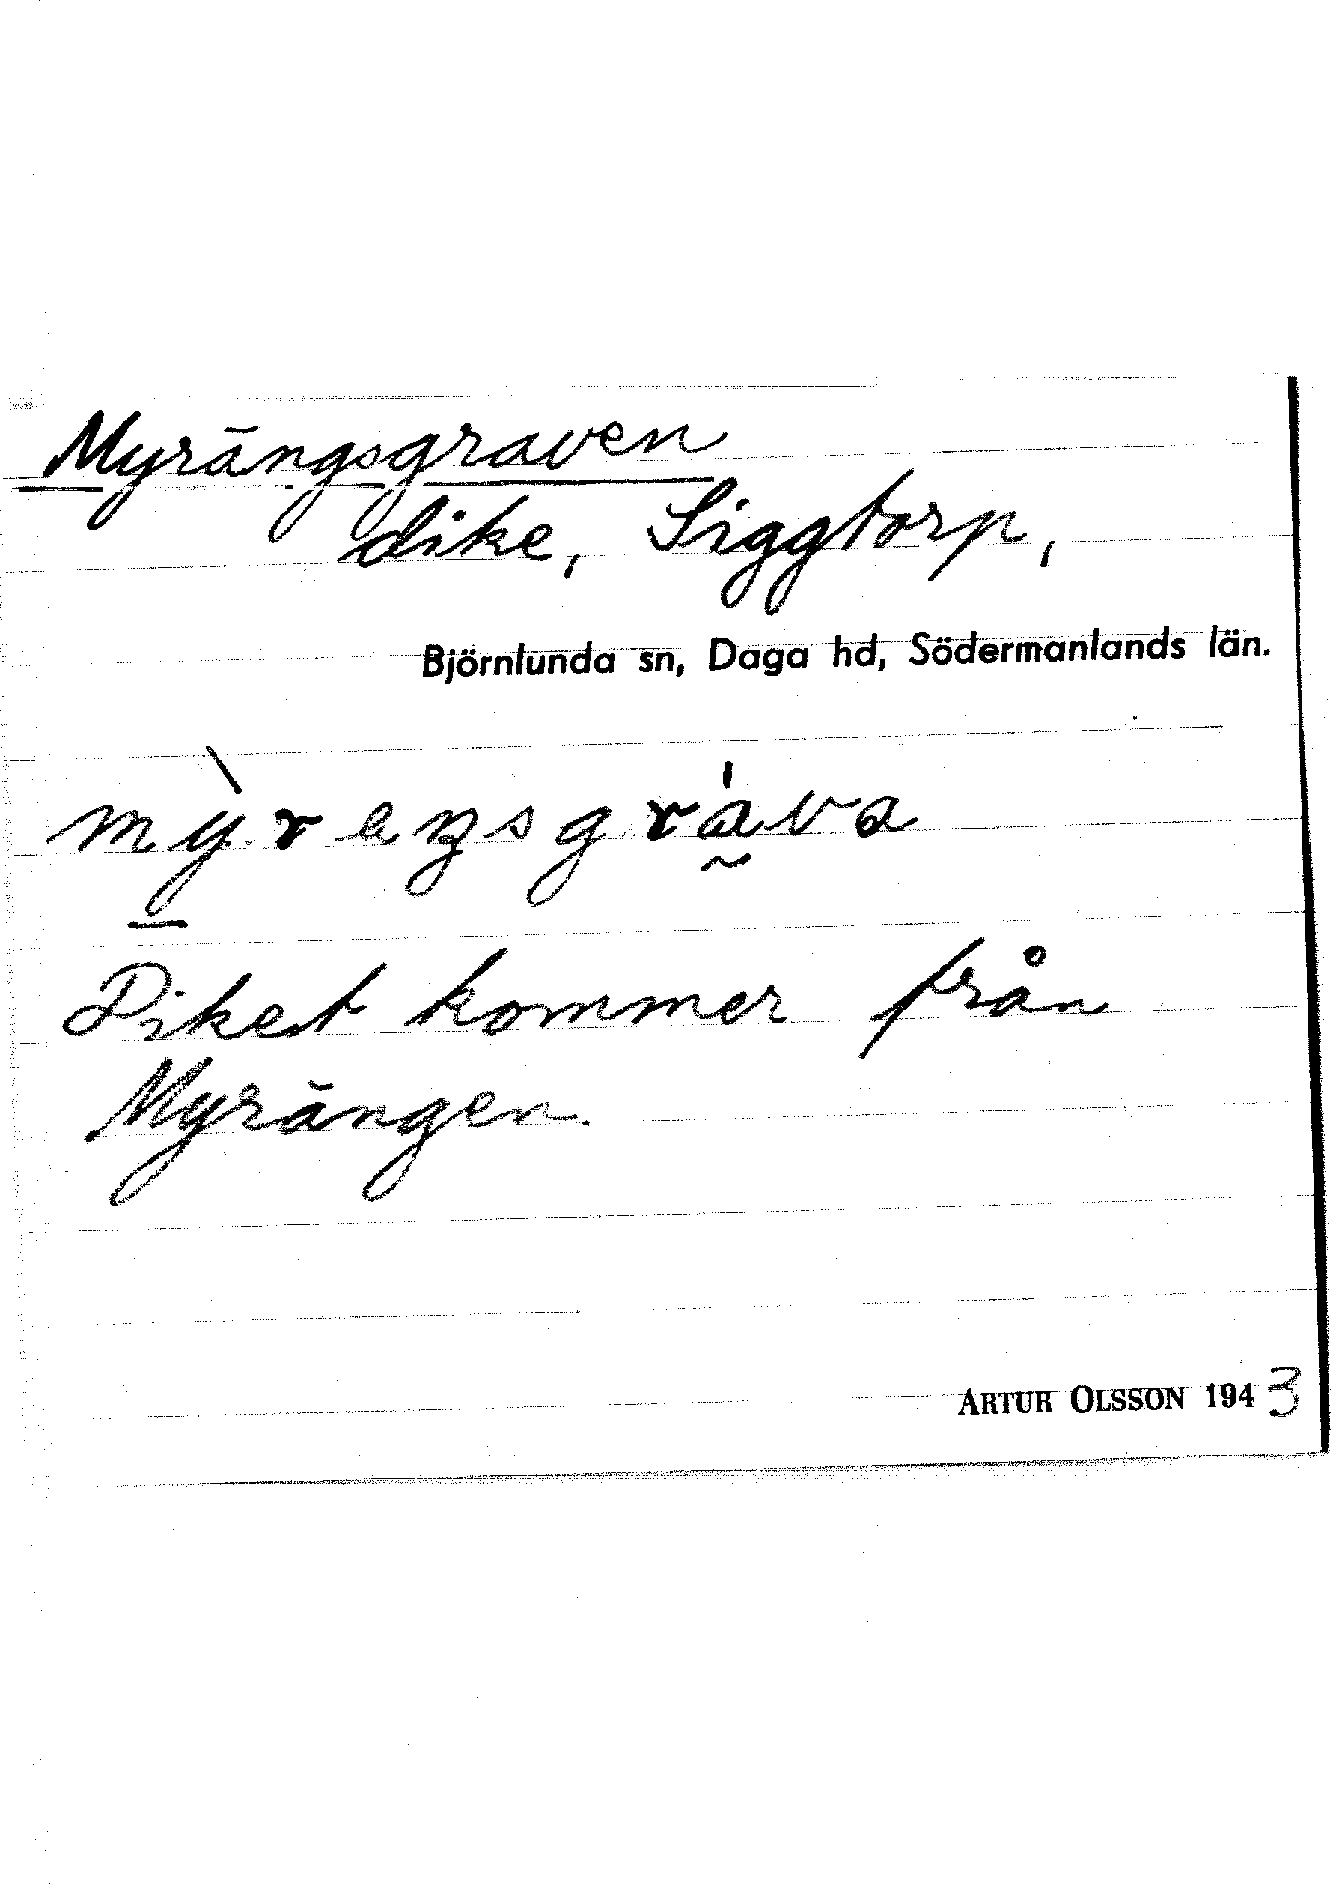 Myrängsgraven
dike, Siggtorp,
Björnlunda sn, Daga hd, Södermanlands län.
Diket kommer från
Myrängen.
ARTUR OLSSON 1943